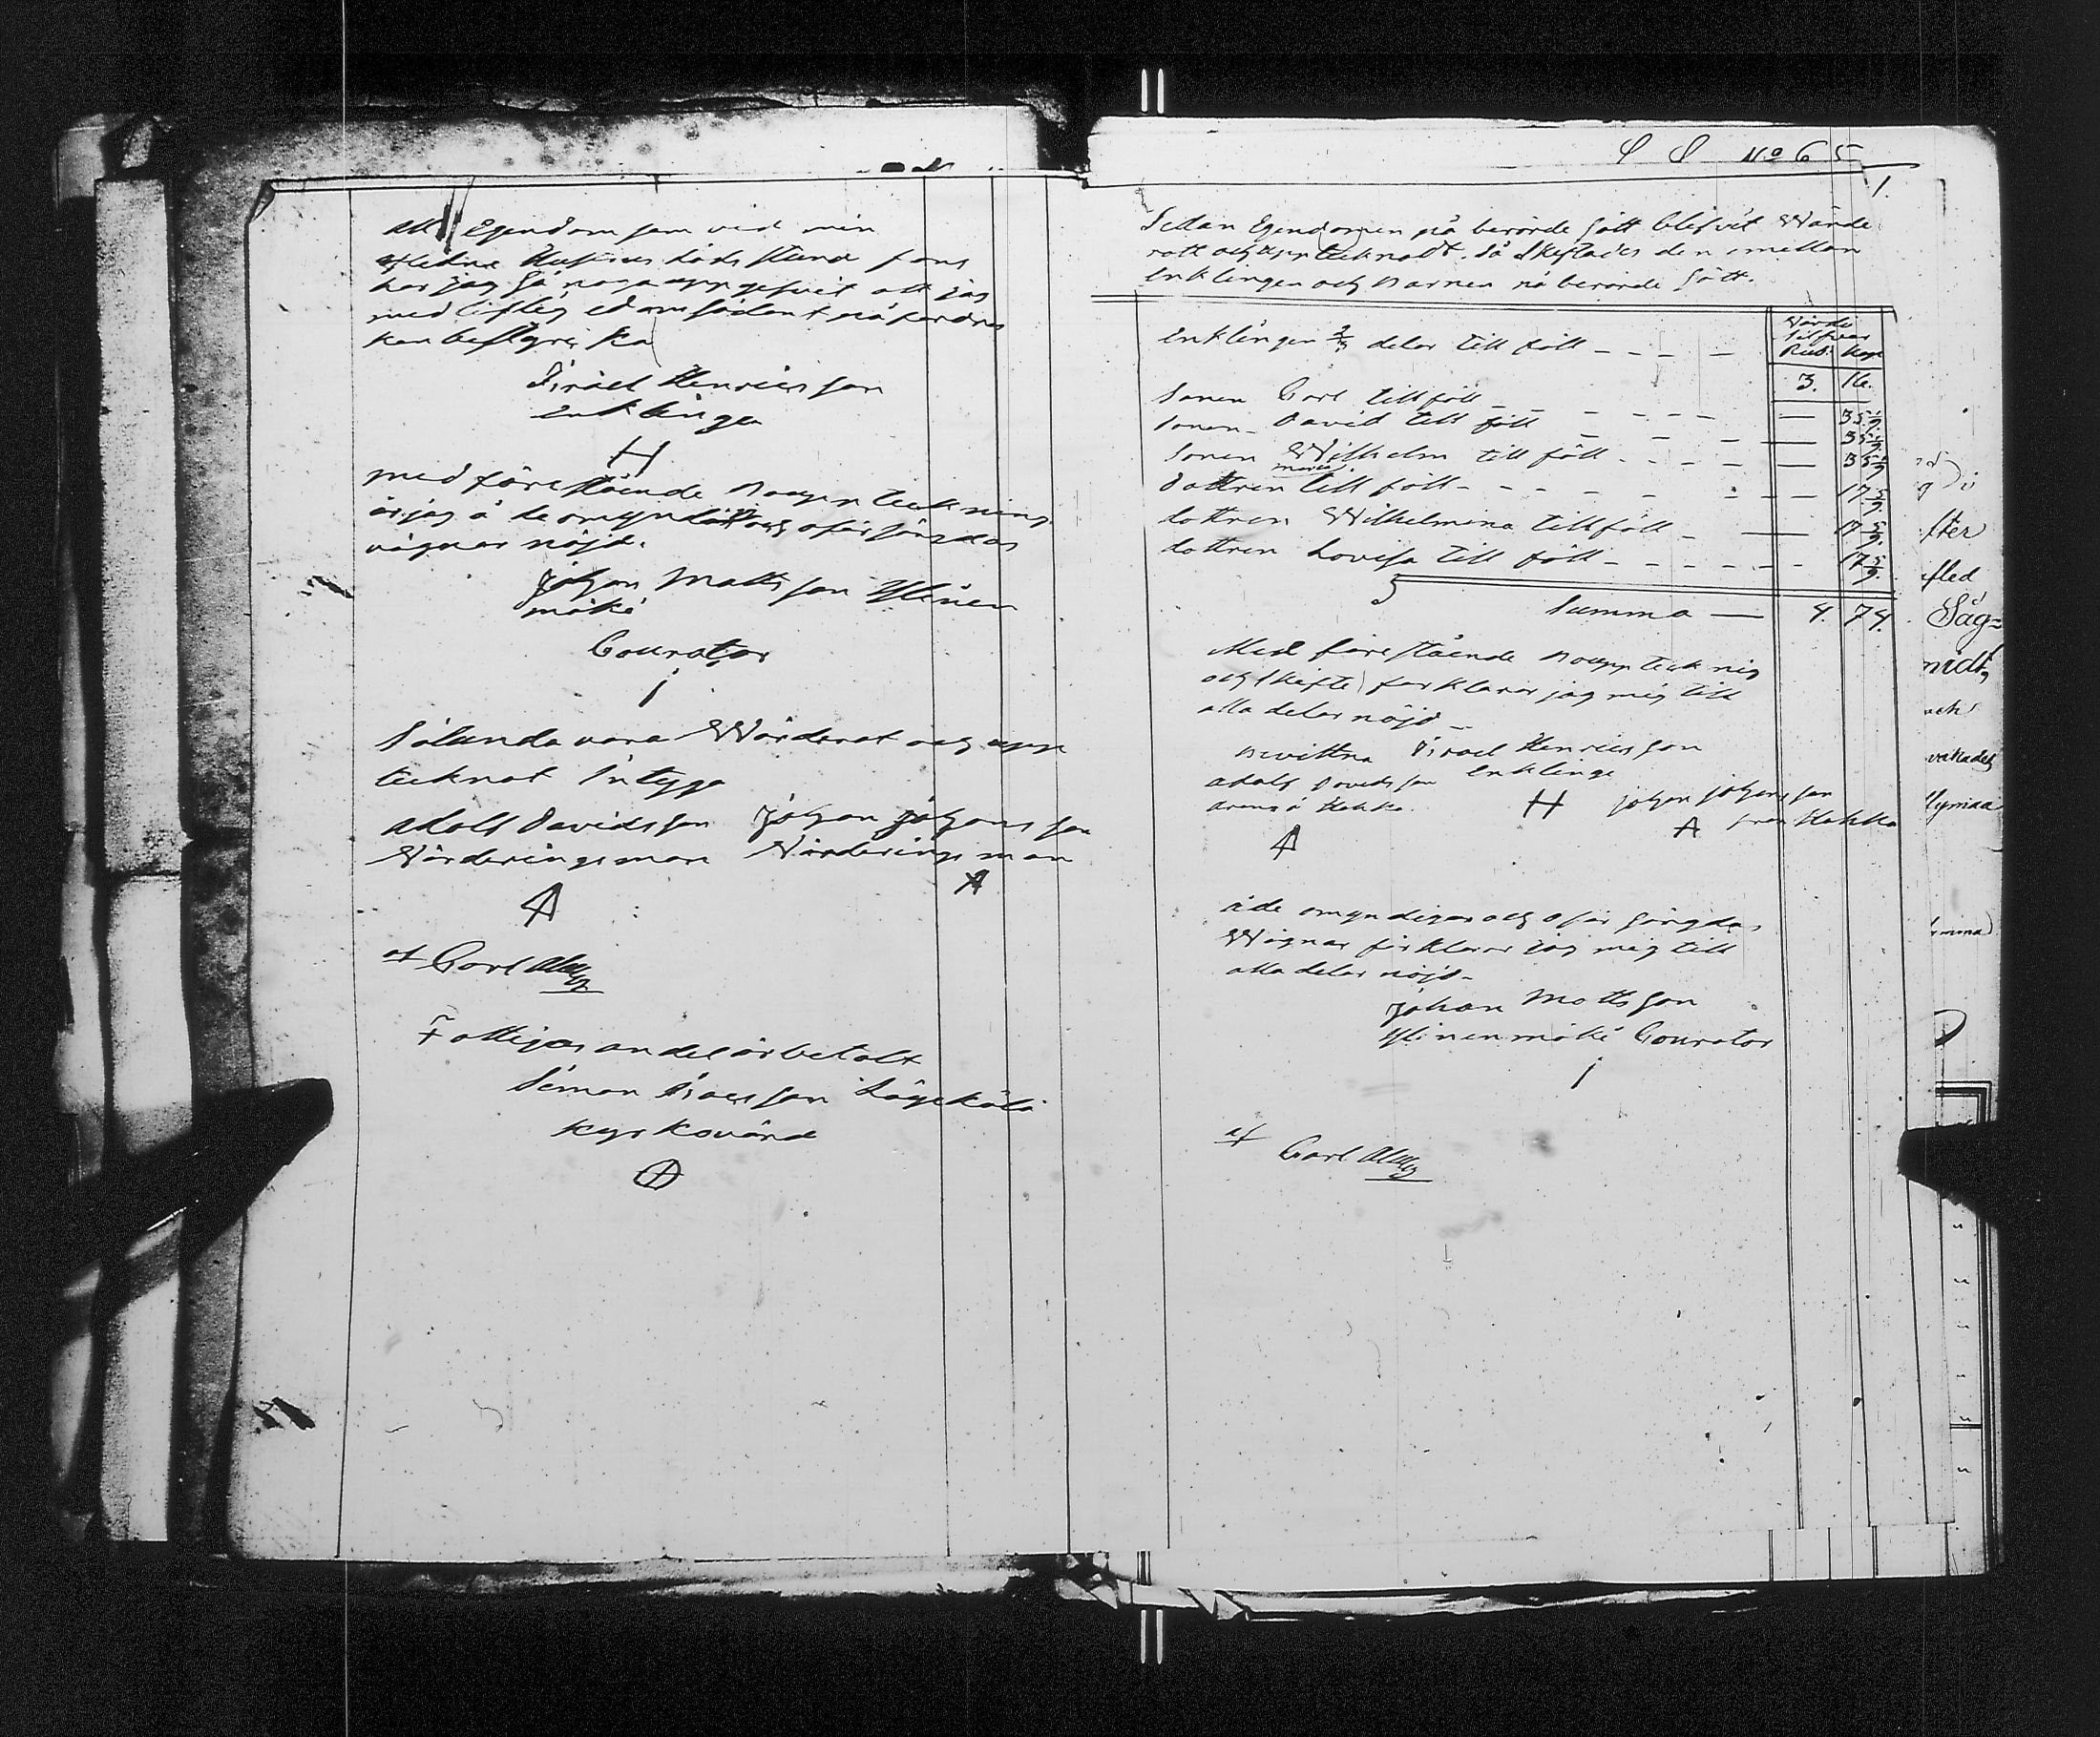 all Egendom som vid min
afledne Hustrus döds stund fans
har jag så noga uppgifvit att jag
med liflig ed om sådant påfordras
kan bestyrka
Israel Henricsson
enklinge
H
med föreståendе Bouppteckning
är jag å de omyndiga och oförsörgdas
vägnar nöjd.
Johan Mattsson Ylinen
mäki
Courator
Sålunda vara Wärderat och upp
tecknat Intyga
Adolf Davidsson Johan Johansson
Wärderingsman Wärderingsman
A A
af Carl
Fattigas andel är betalt
Simon Isacsson
kyrkovärd
S S No 65
1.
Sedan Egendomen på berörde sätt blifvit Wärde
ratt och upptecknadt. Så Skiftades den emellan
Enklingen och Barnen på berörde sätt.
Värde
Silfver
Rub. Kop
Enklingen 2/3 delar till föll - - - - 3. 16.
Sonen Carl till föll - - - - - 35 1/9.
Sonen David till föll - - - - 35 1/9
Sonen Wilhelm till föll - - - - 35 1/9
Dottren Maria till föll - - - - - 17 5/9
dottren Wilhelmina till föll - - 17 5/9.
dottren Lovisa till föll - - - - - - 17 5/9.
Summa — 4. 74.
Med föreståendе Bouppteckning
och skifte förklarar jag mig till
alla delar nöjd -
Bevittna Israel Henricsson
Adolf Davidsson Enklinge
H Johan Johansson
A från Hakka
A
å de omyndigas och oförsörgdas
Wägnar förklarar jag mig till
alla delar nöjd -
Johan Mattsson
Ylinenmäki Courator
af
Carl